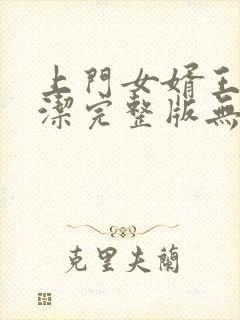 上門女婿王
潔完整版無
克里夫蘭